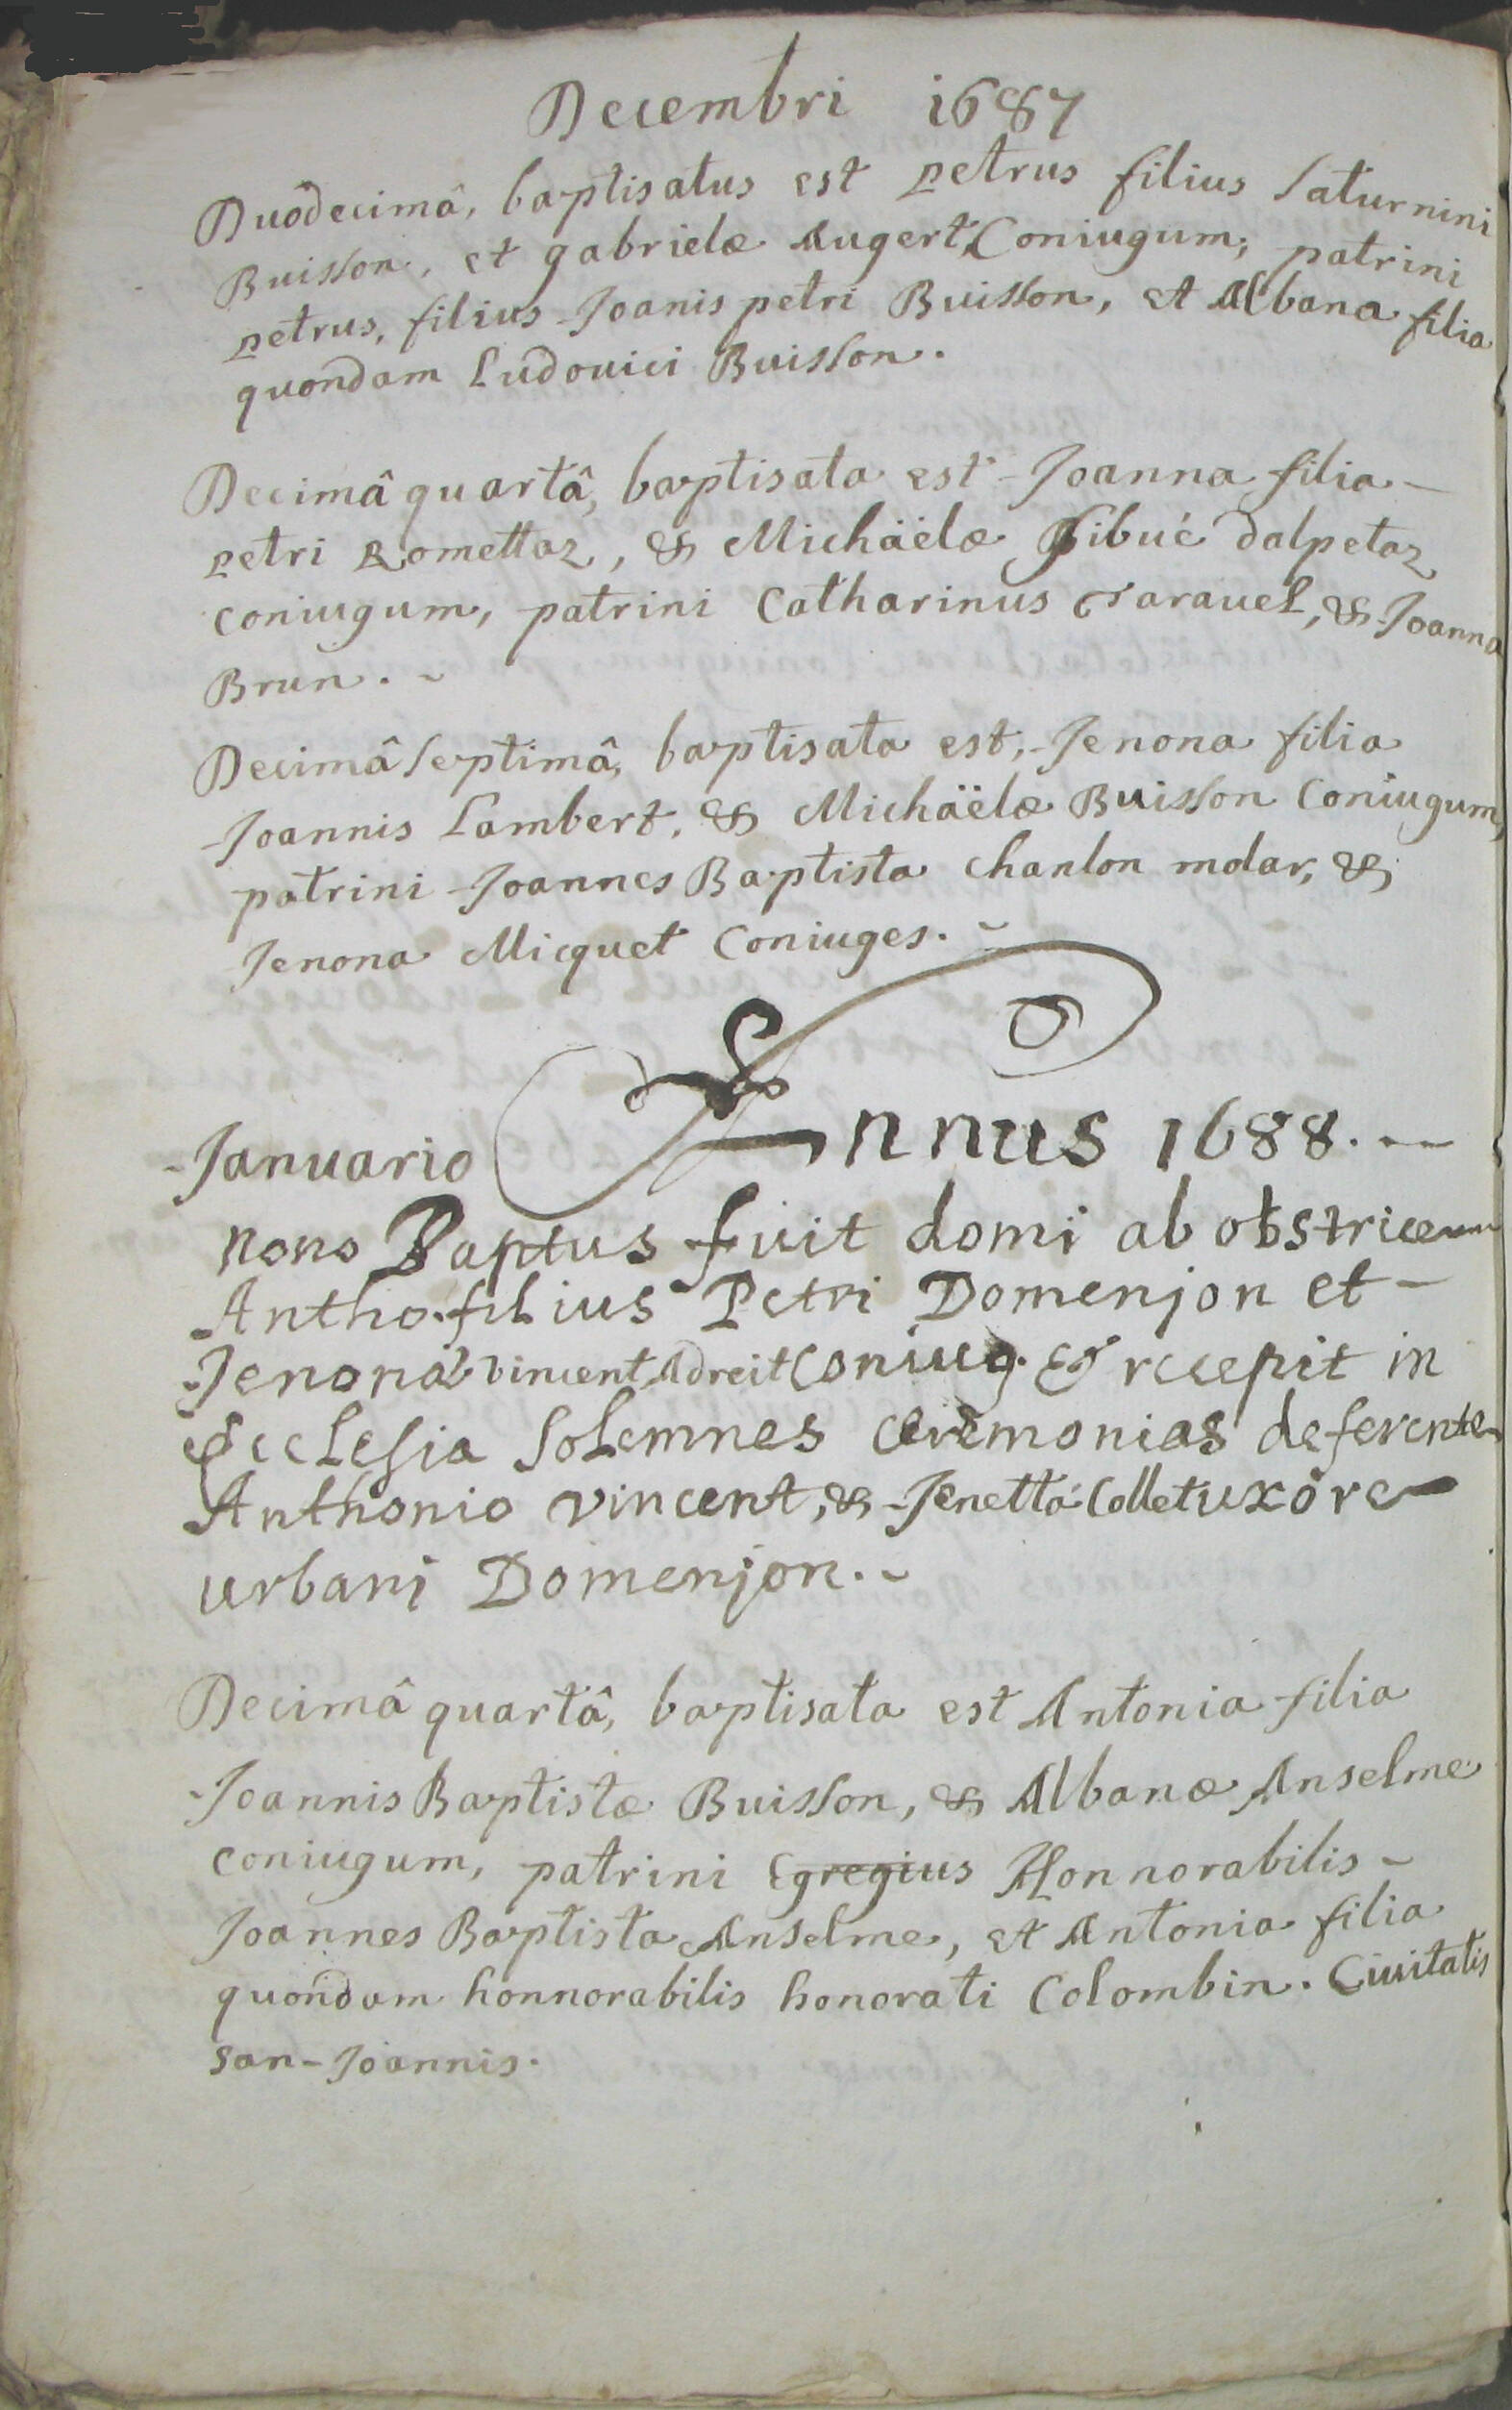 Decembri 1687
Duodecimâ, baptisatus est petrus filius Saturnini
Buisson, et gabrielæ Augert Coniugum, patrini
petrus, filius Joanis petri Buisson, et Albana filia
quondam Ludouici Buisson.
Decimâ quartâ, baptisata est Joanna filia
petri Romettaz, & Michäelæ dalpetaz
coniugum, patrini Catharinus Tarauel, & Joanna
Brun.
Decimâ Septimâ, baptisata est, Jenona filia
Joannis Lambert, & Michäelæ Buisson Coniugum,
patrini Joannes Baptista molar, &
Jenona Micquet Coniuges.
Annus 1688.
Januario
nono Baptus fuit domi ab obstrice
Antho. filius Petri Domenjon et
Jenonæ Vincent Adreit Coniug. & recepit in
Ecclesia Solemnes ceremonias deferente
Anthonio vincent, & Jenetta Collet uxore
urbani Domenjon.
Decimâ quartâ, baptisata est Antonia filia
Joannis Baptistæ Buisson, & Albanæ Anselme
coniugum, patrini Egregius Honnorabilis
Joannes Baptista Anselme, et Antonia filia
quondam honnorabilis honorati Colombin. Ciuitatis
san-Joannis.